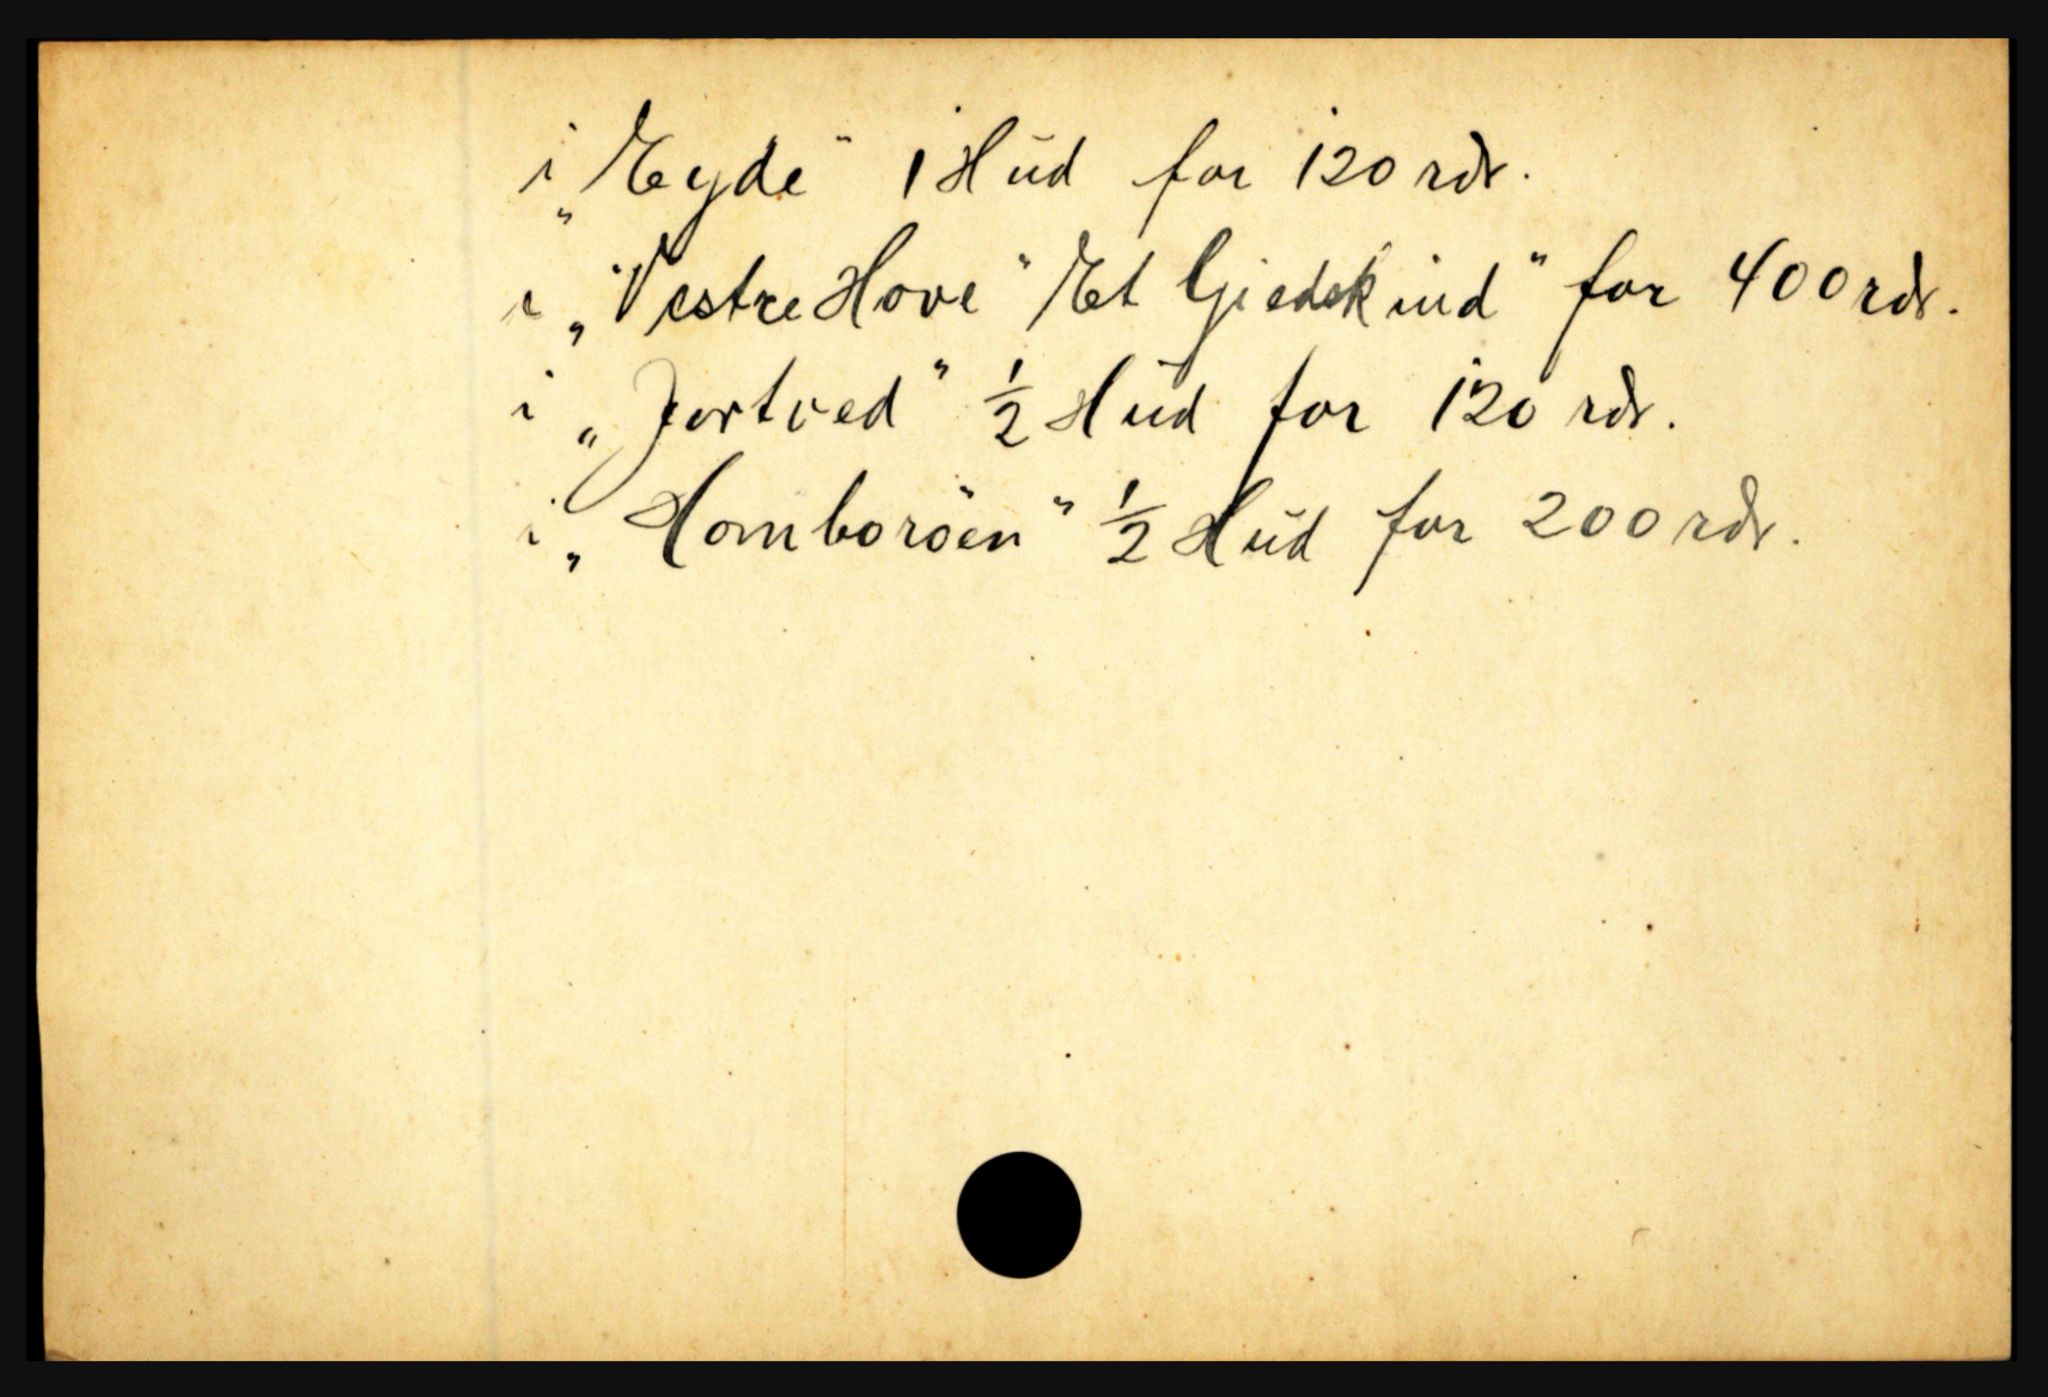 i „Eyde" 1 Hud for 120 rdr.
i „Vestre Hove" Et Gjedskind" for 400 rdr.
i „Jortved" ½ Hud for 120 rdr.
i „Homborøen" ½ Hud for 200 rdr.